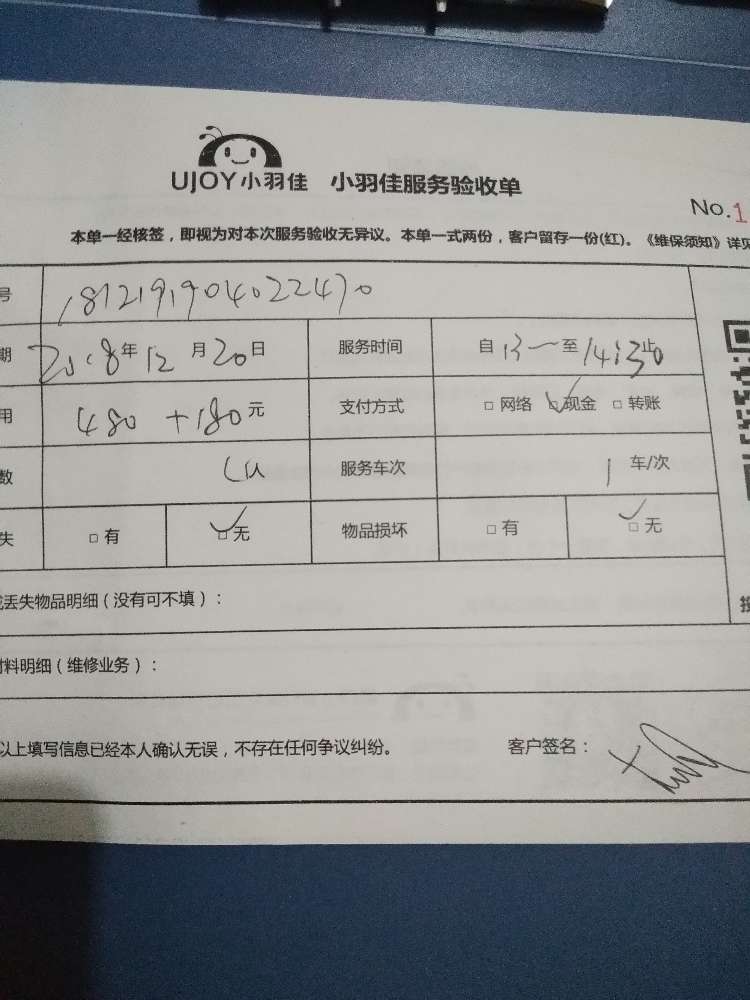 UJOY小羽佳 小羽佳服务验收单
No.1
本单一经核签，即视为对本次服务验收无异议。本单一式两份，客户留存一份(红)。《维保须知》详见
号 1812191904022470
期 2018年12月20日 服务时间 自13一至14:30止
用 480+180元 支付方式 □网络 □现金 □转账
数 服务车次 1车/次
失 □有 □无 物品损坏 □有 □无
丢失物品明细（没有可不填）：
材料明细（维修业务）：
以上填写信息已经本人确认无误，不存在任何争议纠纷。 客户签名：